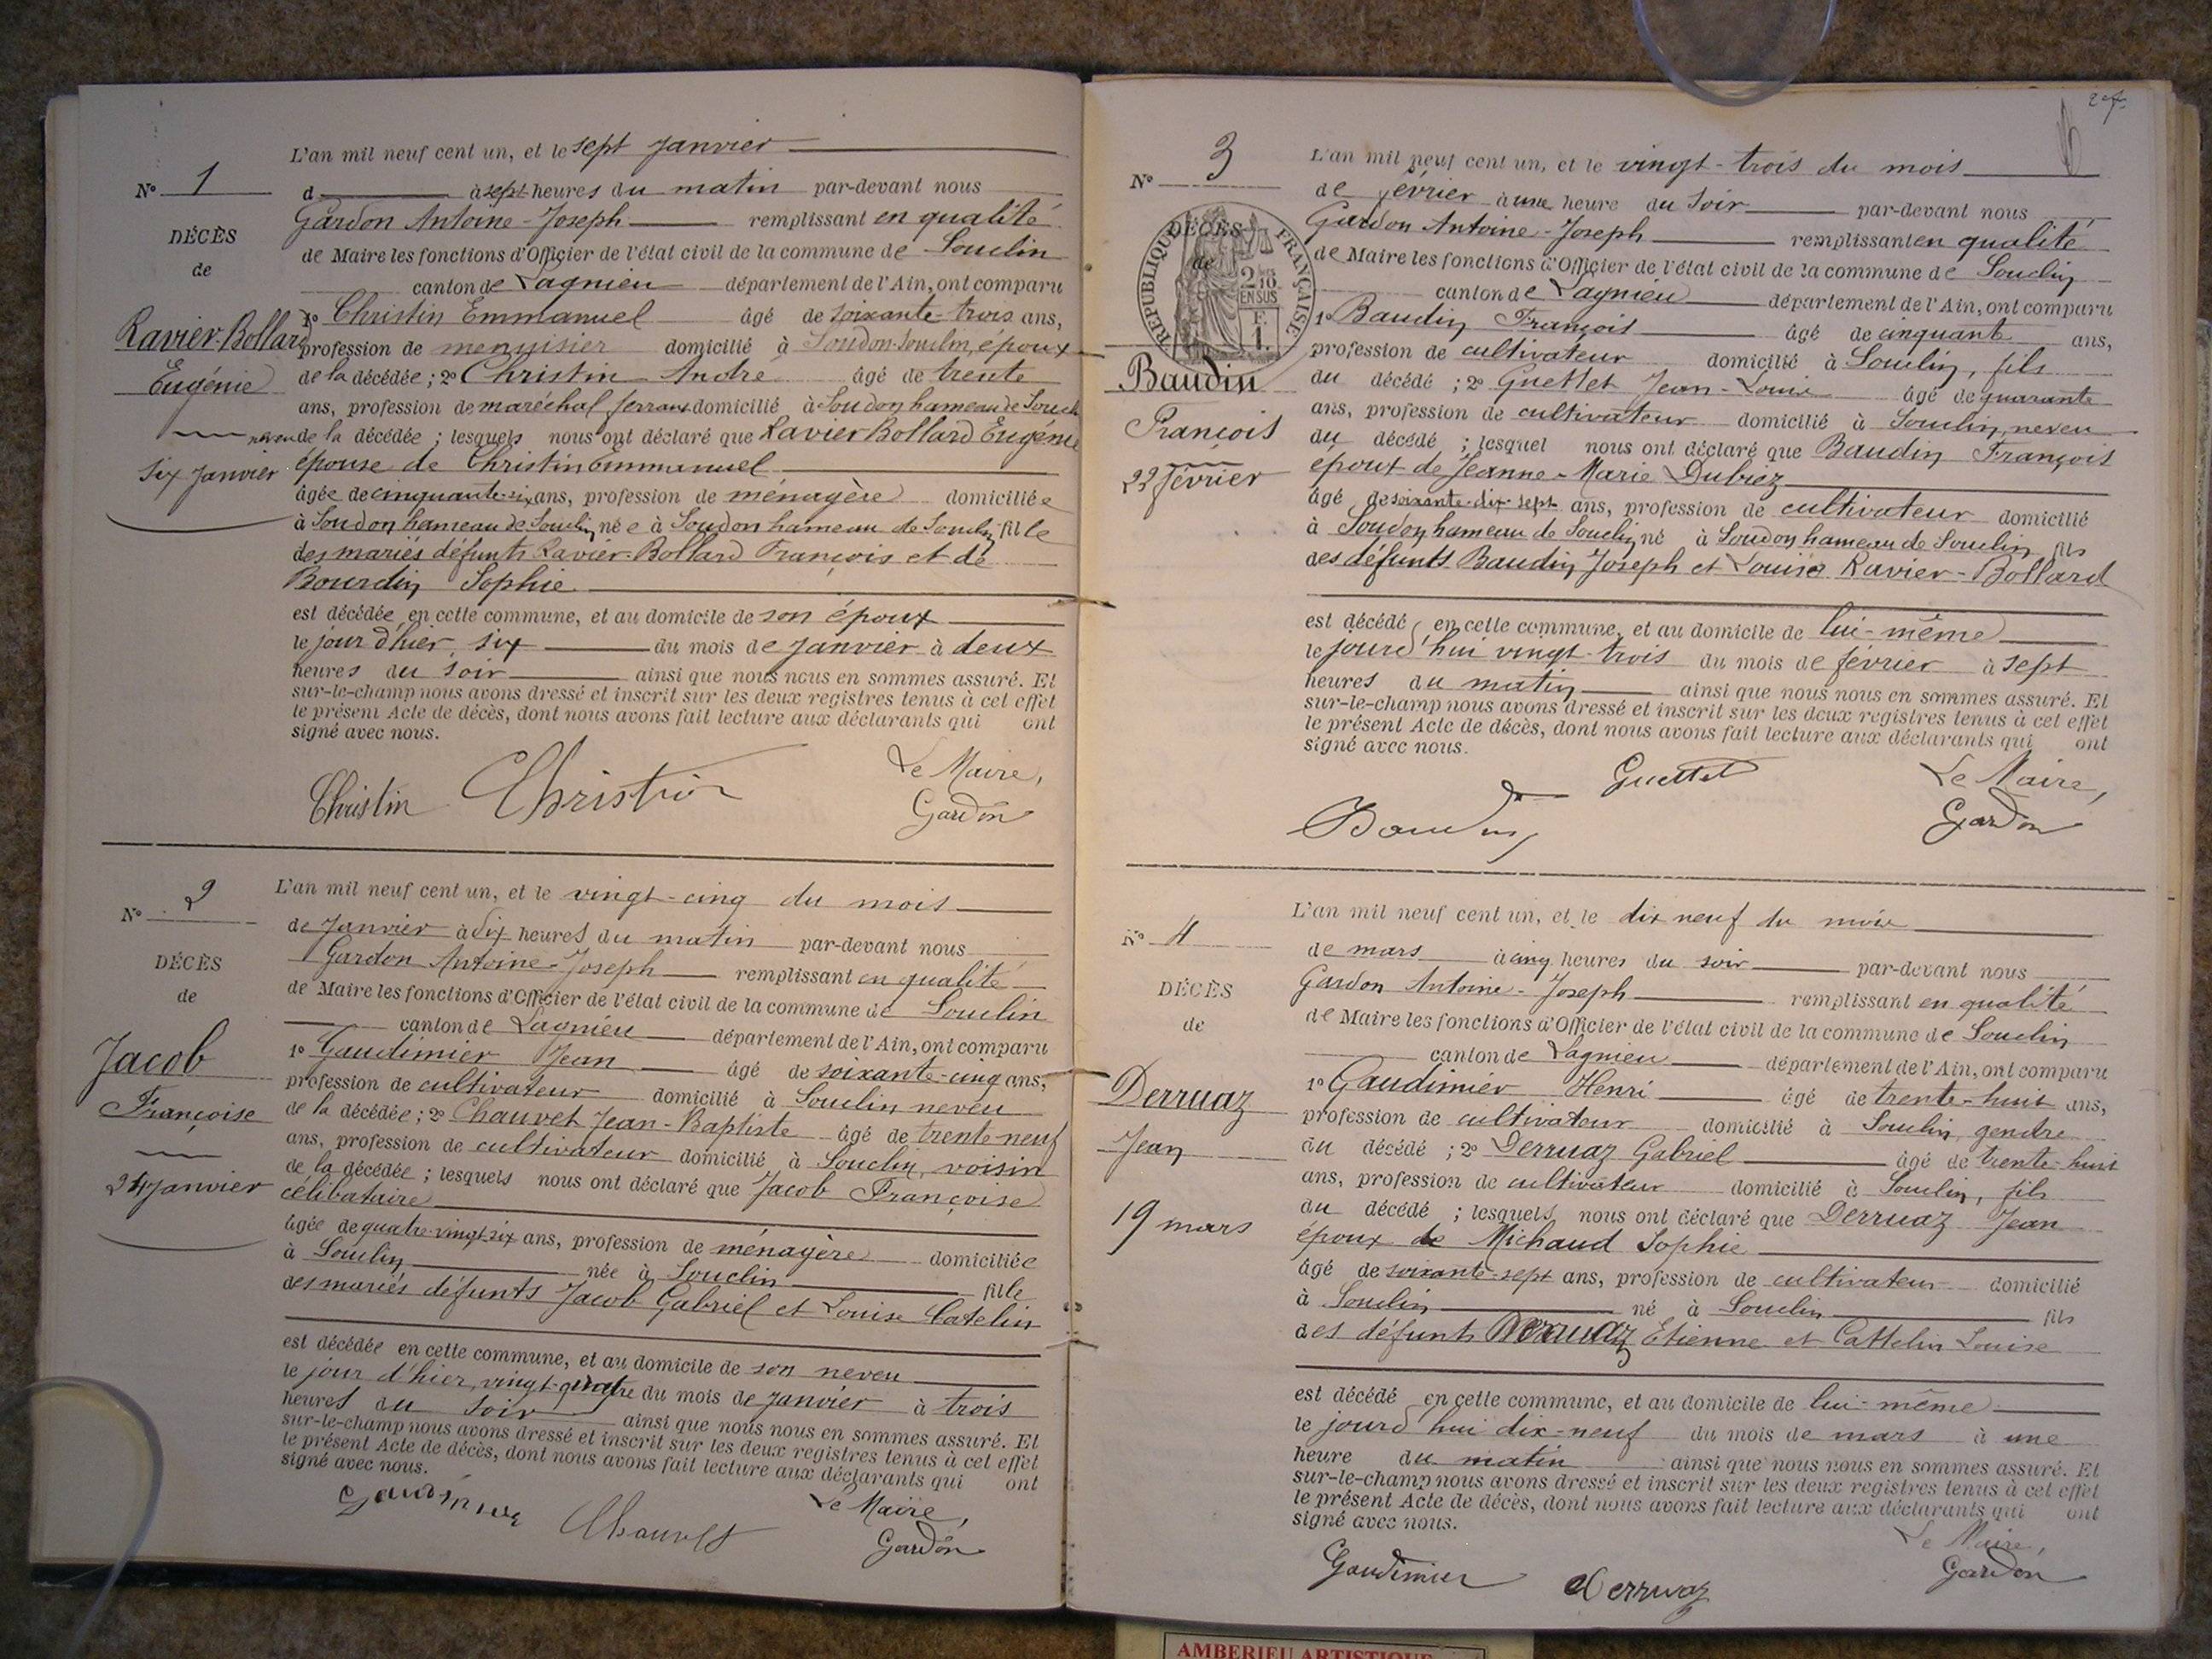 N° 1
DÉCÈS
de
Ravier-Bollard
Eugénie
six janvier
L'an mil neuf cent un, et le sept janvier
d à sept heures du matin par-devant nous
Gardon Antoine-Joseph remplissant en qualité
de Maire les fonctions d'Officier de l'état civil de la commune de Souclin
canton de Lagnieu département de l'Ain, ont comparu
1° Christin Emmanuel âgé de soixante-trois ans,
profession de menuisier domicilié à Soudon-Souclin, époux
de la décédée; 2° Christin André âgé de trente
ans, profession de maréchal ferrant domicilié à Soudon hameau de Souclin
neveu de la décédée; lesquels nous ont déclaré que Ravier Bollard Eugénie
épouse de Christin Emmanuel
âgée de cinquante-six ans, profession de ménagère domiciliée
à Soudon hameau de Souclin née à Soudon hameau de Souclin fille
des mariés défunts Ravier-Bollard François et de
Bourdin Sophie
est décédée en cette commune, et au domicile de son époux
le jour d'hier, six du mois de janvier à deux
heures du soir ainsi que nous nous en sommes assuré. Et
sur-le-champ nous avons dressé et inscrit sur les deux registres tenus à cet effet
le présent Acte de décès, dont nous avons fait lecture aux déclarants qui ont
signé avec nous.
Le Maire,
Christin Christin Gardon
N° 2
DÉCÈS
de
Jacob
Françoise
24 janvier
L'an mil neuf cent un, et le vingt-cinq du mois
de janvier à dix heures du matin par-devant nous
Gardon Antoine-Joseph remplissant en qualité
de Maire les fonctions d'Officier de l'état civil de la commune de Souclin
canton de Lagnieu département de l'Ain, ont comparu
1° Gaudimier Jean âgé de soixante-cinq ans,
profession de cultivateur domicilié à Souclin neveu
de la décédée; 2° Chauvet Jean-Baptiste âgé de trente-neuf
ans, profession de cultivateur domicilié à Souclin, voisin
de la décédée; lesquels nous ont déclaré que Jacob Françoise
célibataire
âgée de quatre-vingt-six ans, profession de ménagère domiciliée
à Souclin née à Souclin fille
des mariés défunts Jacob Gabriel et Louise Catelin
est décédée en cette commune, et au domicile de son neveu
le jour d'hier, vingt-quatre du mois de janvier à trois
heures du soir ainsi que nous nous en sommes assuré. Et
sur-le-champ nous avons dressé et inscrit sur les deux registres tenus à cet effet
le présent Acte de décès, dont nous avons fait lecture aux déclarants qui ont
signé avec nous.
Le Maire,
Gaudimier Chauvet Gardon
27
N° 3
DÉCÈS
de
RÉPUBLIQUE FRANÇAISE
2/10 EN SUS
F. 1.
Baudin
François
23 février
L'an mil neuf cent un, et le vingt-trois du mois
de février à une heure du soir par-devant nous
Gardon Antoine-Joseph remplissant en qualité
de Maire les fonctions d'Officier de l'état civil de la commune de Souclin
canton de Lagnieu département de l'Ain, ont comparu
1° Baudin François âgé de cinquante ans,
profession de cultivateur domicilié à Souclin, fils
du décédé; 2° Guettet Jean-Louis âgé de quarante
ans, profession de cultivateur domicilié à Souclin, neveu
du décédé; lesquel nous ont déclaré que Baudin François
époux de Jeanne-Marie Dubiez
âgé de soixante-dix-sept ans, profession de cultivateur domicilié
à Soudon hameau de Souclin né à Soudon hameau de Souclin fils
des défunts Baudin Joseph et Louise Ravier-Bollard
est décédé en cette commune, et au domicile de lui-même
le jourd'hui vingt-trois du mois de février à sept
heures du matin ainsi que nous nous en sommes assuré. Et
sur-le-champ nous avons dressé et inscrit sur les deux registres tenus à cet effet
le présent Acte de décès, dont nous avons fait lecture aux déclarants qui ont
signé avec nous.
Guettet Le Maire,
Baudin Gardon
N° 4
DÉCÈS
de
Derruaz
Jean
19 mars
L'an mil neuf cent un, et le dix neuf du mois
de mars à cinq heures du soir par-devant nous
Gardon Antoine-Joseph remplissant en qualité
de Maire les fonctions d'Officier de l'état civil de la commune de Souclin
canton de Lagnieu département de l'Ain, ont comparu
1° Gaudimier Henri âgé de trente-huit ans,
profession de cultivateur domicilié à Souclin, gendre
du décédé; 2° Derruaz Gabriel âgé de trente-huit
ans, profession de cultivateur domicilié à Souclin, fils
du décédé; lesquels nous ont déclaré que Derruaz Jean
époux de Michaud Sophie
âgé de soixante-sept ans, profession de cultivateur domicilié
à Souclin né à Souclin fils
des défunts Derruaz Etienne et Cattelin Louise
est décédé en cette commune, et au domicile de lui-même
le jourd'hui dix-neuf du mois de mars à une
heure du matin ainsi que nous nous en sommes assuré. Et
sur-le-champ nous avons dressé et inscrit sur les deux registres tenus à cet effet
le présent Acte de décès, dont nous avons fait lecture aux déclarants qui ont
signé avec nous.
Le Maire,
Gaudimier Derruaz Gardon
AMBERIEU ARTISTIQUE